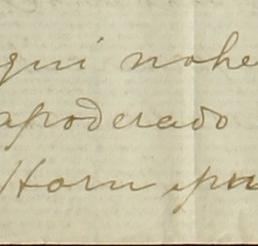 qui nohe
apoderado
Horn pu